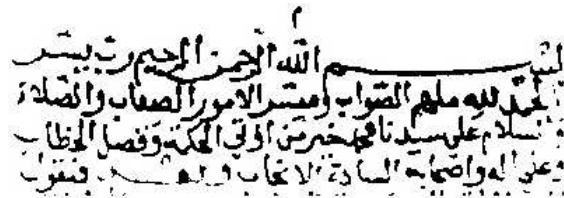 بسم الله الرحمن الرحيم رب يسر
الحمد لله ملهم الصواب وميسر الامور الصعاب والصلاة
والسلام على سيدنا محمد خير من اوتي الحكمة وفصل الخطاب
وعلى اله واصحابه السادة الانجاب فيقول